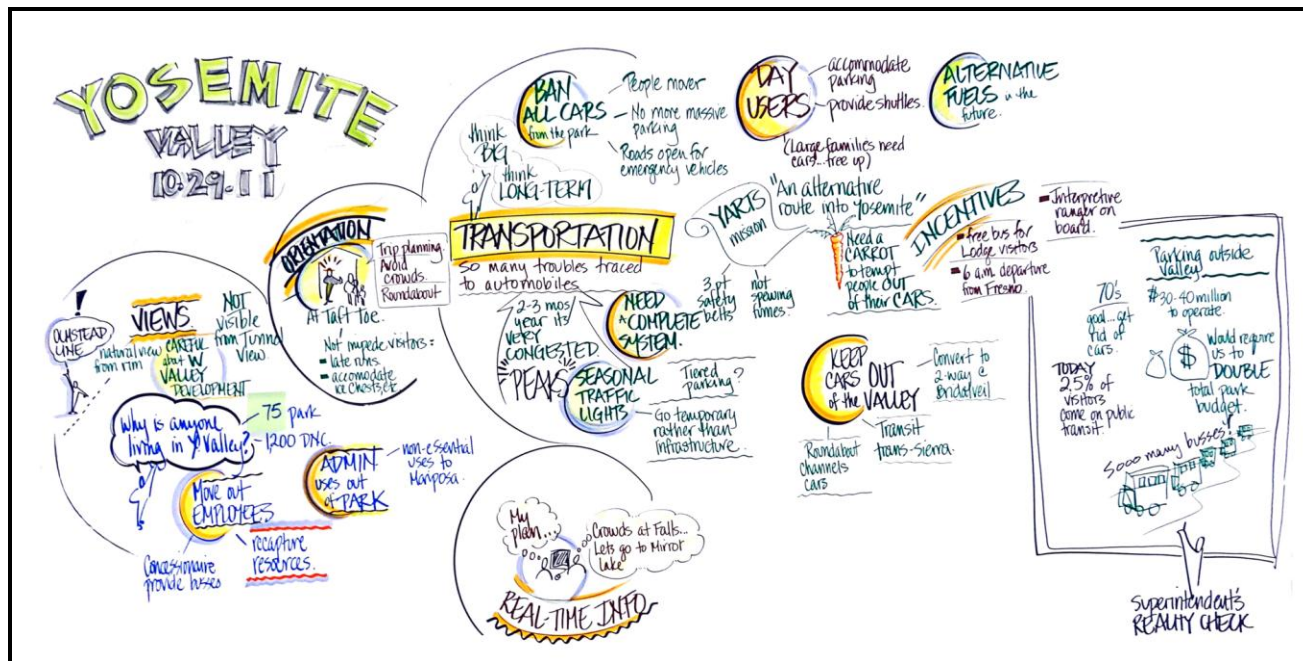 YOSEMITE
VALLEY
10.29.11
OLMSTEAD
LINE
natural view
from rim
VIEWS
NOT
visible
from Tunnel
View.
CAREFUL
about W
VALLEY
DEVELOPMENT
Why is anyone
living in Y. Valley?
75 park
1,200 DNC.
Move out
EMPLOYEES
Concessionaire
provide busses
recapture
resources.
ADMIN
uses out
of PARK
non-essential
uses to
Mariposa.
ORIENTATION
Trip planning.
Avoid
crowds.
Roundabout
At Taft Toe.
Not impede visitors:
late nihs.
accomodate
ice chests, etc
think
BIG
think
LONG-TERM
BAN
ALL CARS
from the park
People mover
No more massive
parking
Roads open for
emergency vehicles
TRANSPORTATION
So many troubles traced
to automobiles
2-3 mos/
year its
VERY
CONGESTED.
PEAKS
NEED
A COMPLETE
SYSTEM.
SEASONAL
TRAFFIC
LIGHTS
Tiered
parking?
Go temporary
rather than
infrastructure.
My
plan...
Crowds at Falls...
Lets go to Mirror
Lake
REAL-TIME INFO
DAY
USERS
accommodate
parking
provide shuttles.
(Large families need
cars...free up)
ALTERNATIVE
FUELS in the
future.
YARTS
mission
"An alternative
route into Yosemite"
3 pt
safety
belts
not
spewing
fumes.
Need a
CARROT
to tempt
people OUT
of their CARS.
INCENTIVES
free bus for
Lodge visitors
6 a.m. departure
from Fresno.
Interpretive
ranger on
board.
KEEP
CARS OUT
of the VALLEY
Convert to
2-way @
Bridalveil
Transit
trans-sierra.
Roundabout
channels
cars
70's
goal...get
rid of
cars.
TODAY
2.5% of
visitors
come on public
transit.
Parking outside
Valley
$30-40 million
to operate.
$
Would require
us to
DOUBLE
total park
budget.
Sooo many busses!
Superintendent's
REALITY CHECK